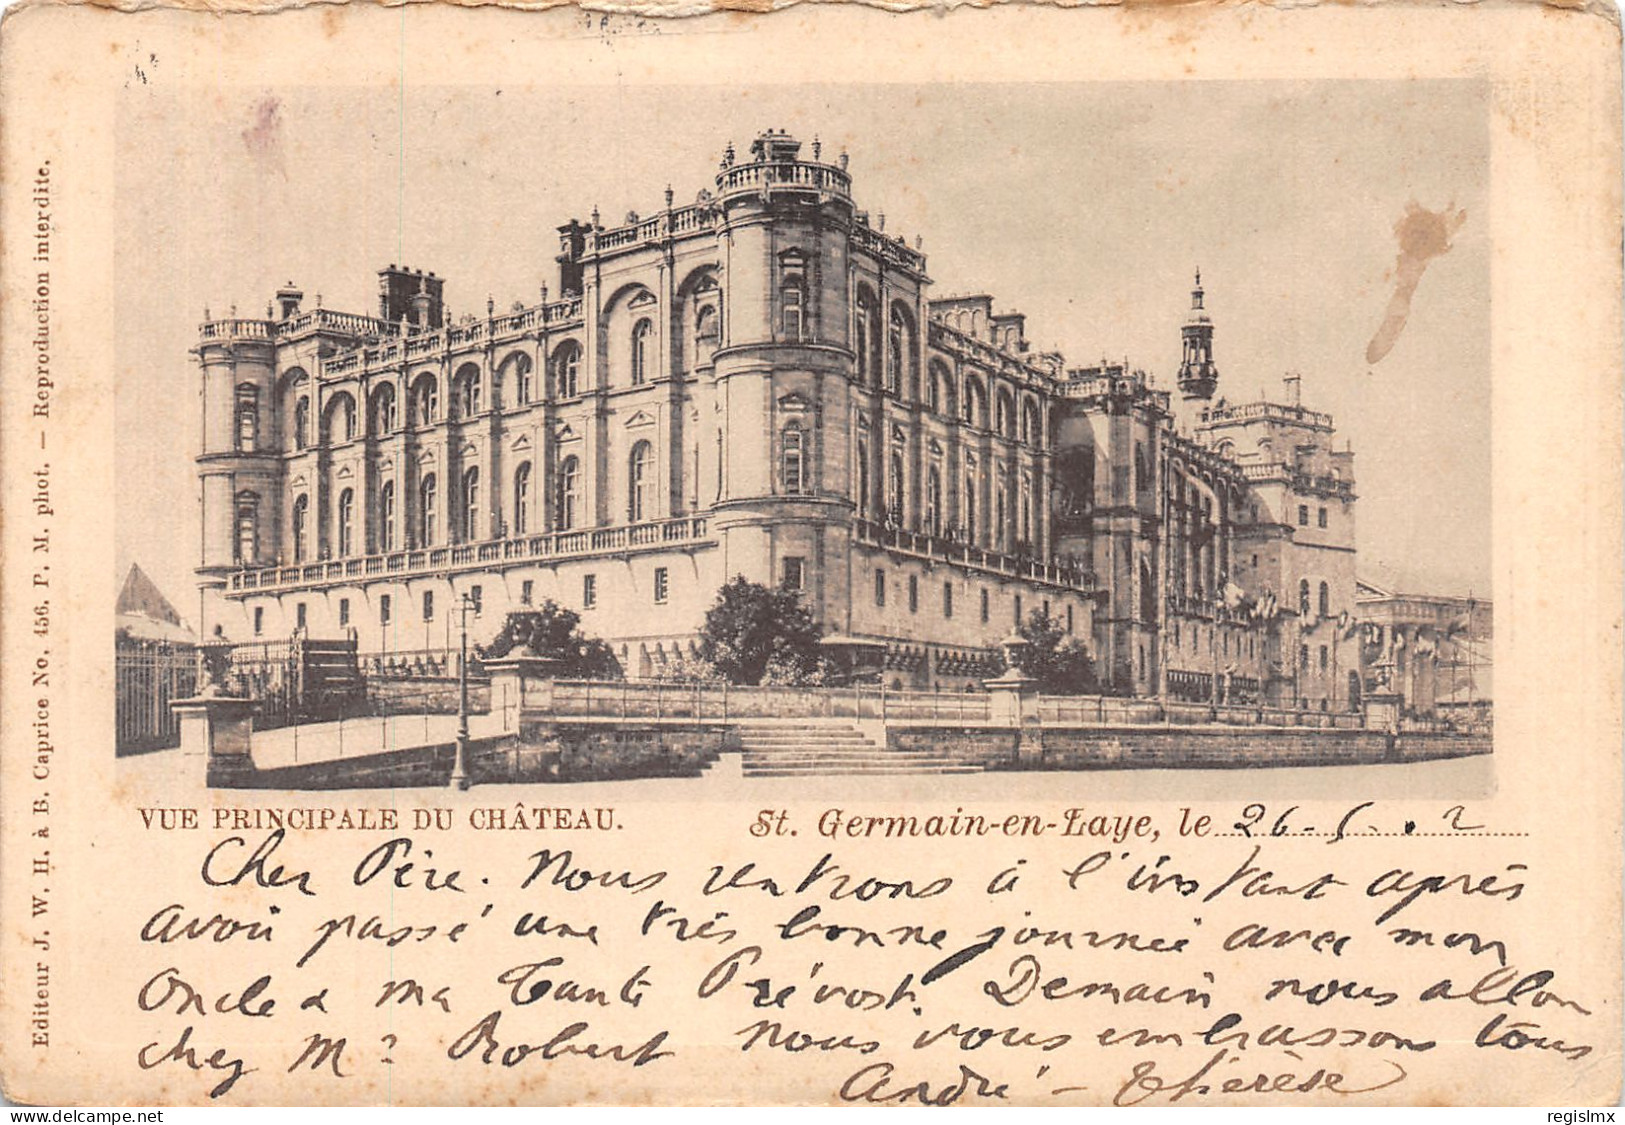 Editeur J. W. H. à B. Caprice No. 456. P. M. phot. — Reproduction interdite.
VUE PRINCIPALE DU CHÂTEAU. St. Germain-en-Laye, le 26-5-02
Cher Père. Nous rentrons à l'instant après
avoir passé une très bonne journée avec mon
Oncle & ma Tante Prévost. Demain nous allon
chez Mr Robert nous vous embrassons tous
André - Thérèse
www.delcampe.net
regislmx